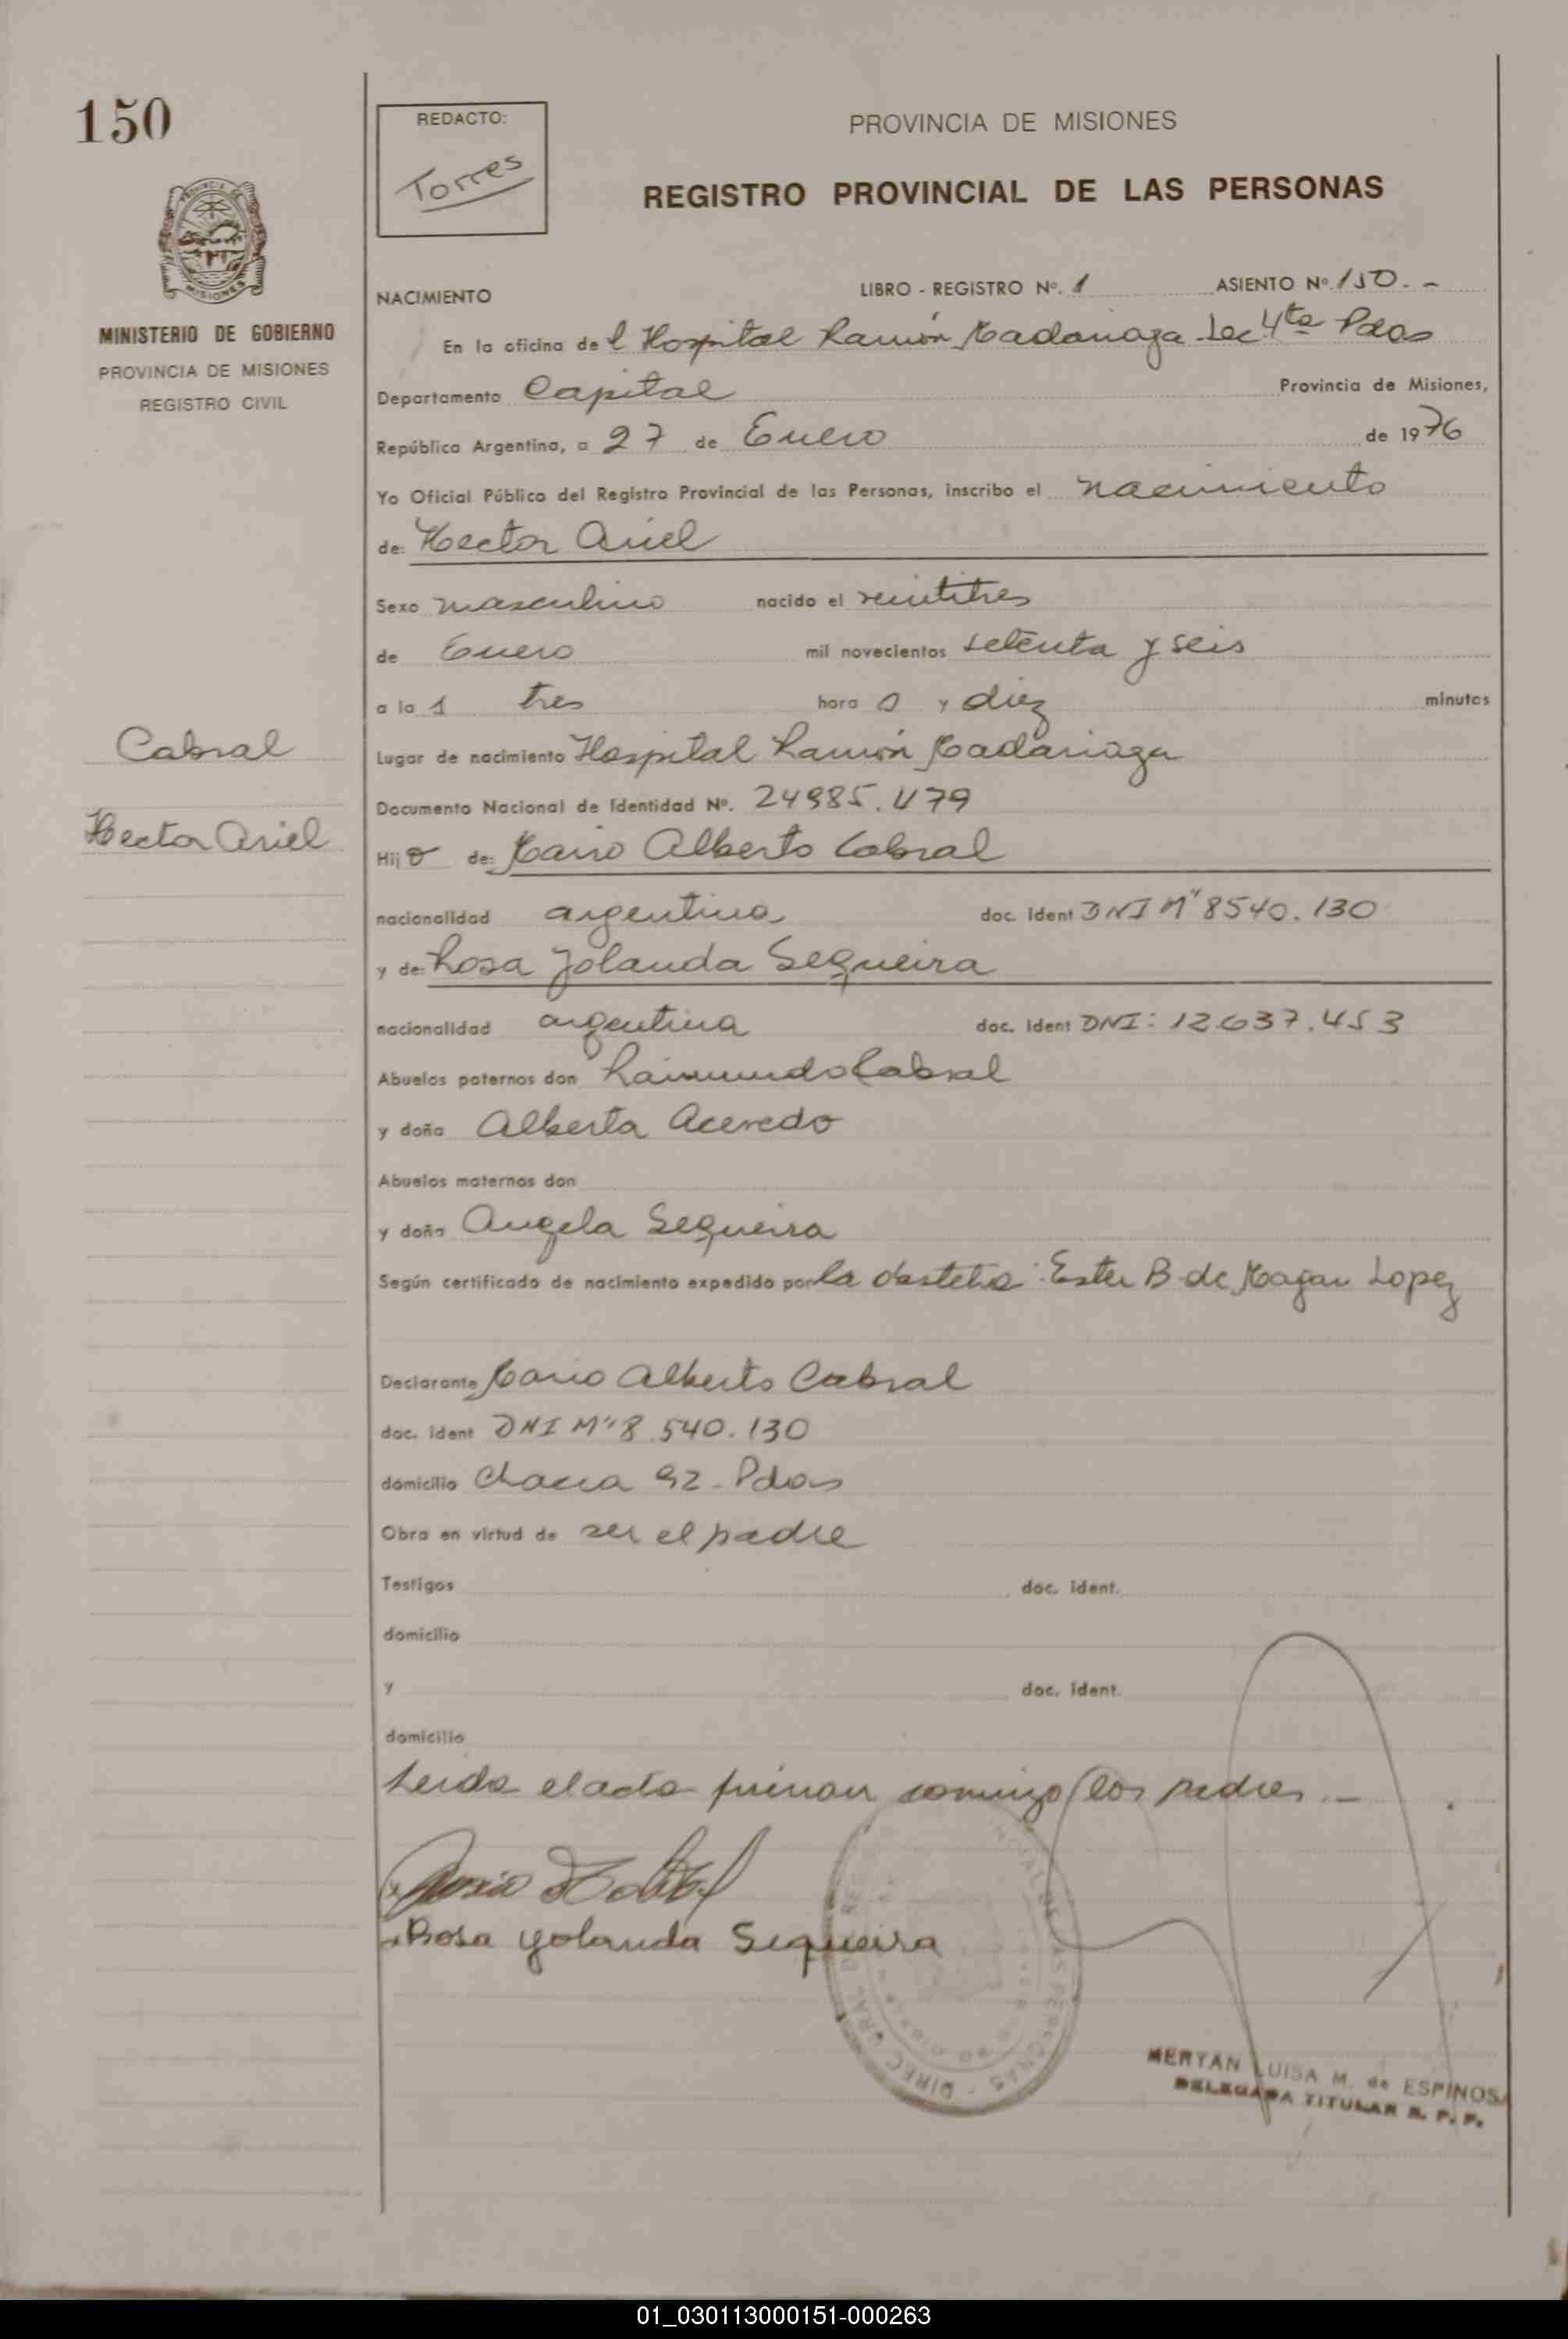 150
REDACTO:
Torres
PROVINCIA DE MISIONES
REGISTRO PROVINCIAL DE LAS PERSONAS
MISIONES
MINISTERIO DE GOBIERNO
PROVINCIA DE MISIONES
REGISTRO CIVIL
NACIMIENTO LIBRO - REGISTRO Nº. 1 ASIENTO Nº. 150.-
En la oficina de l Hospital Ramón Madariaga Sec 4ta Pdas
Departamento Capital Provincia de Misiones,
República Argentina, a 27 de Enero de 1976
Yo Oficial Público del Registro Provincial de las Personas, inscribo el nacimiento
de: Hector Ariel
Sexo masculino nacido el veintitres
de Enero mil novecientos setenta y seis
a la s tres hora s y diez minutos
Cabral
Lugar de nacimiento Hospital Ramón Madariaga
Documento Nacional de Identidad Nº. 24985.479
Hector Ariel
Hij o de: Mario Alberto Cabral
nacionalidad argentina doc. ident DNI Mº 8540.130
y de: Rosa Yolanda Sequeira
nacionalidad argentina doc. ident DNI: 12637.453
Abuelos paternos don Raimundo Cabral
y doña Alberta Acevedo
Abuelos maternos don
y doña Angela Sequeira
Según certificado de nacimiento expedido por la Ester B de Lopez
Declarante Mario Alberto Cabral
doc. ident DNI Mº 8.540.130
domicilio Chacra 92 - Pdas
Obra en virtud de ser el padre
Testigos doc. ident.
domicilio
y doc. ident.
domicilio
Leida el acta firman conmigo los padres.-
Rosa yolanda Sequeira
MERYAN LUISA M. de ESPINOSA
DELEGADA TITULAR R. P. P.
01_030113000151-000263